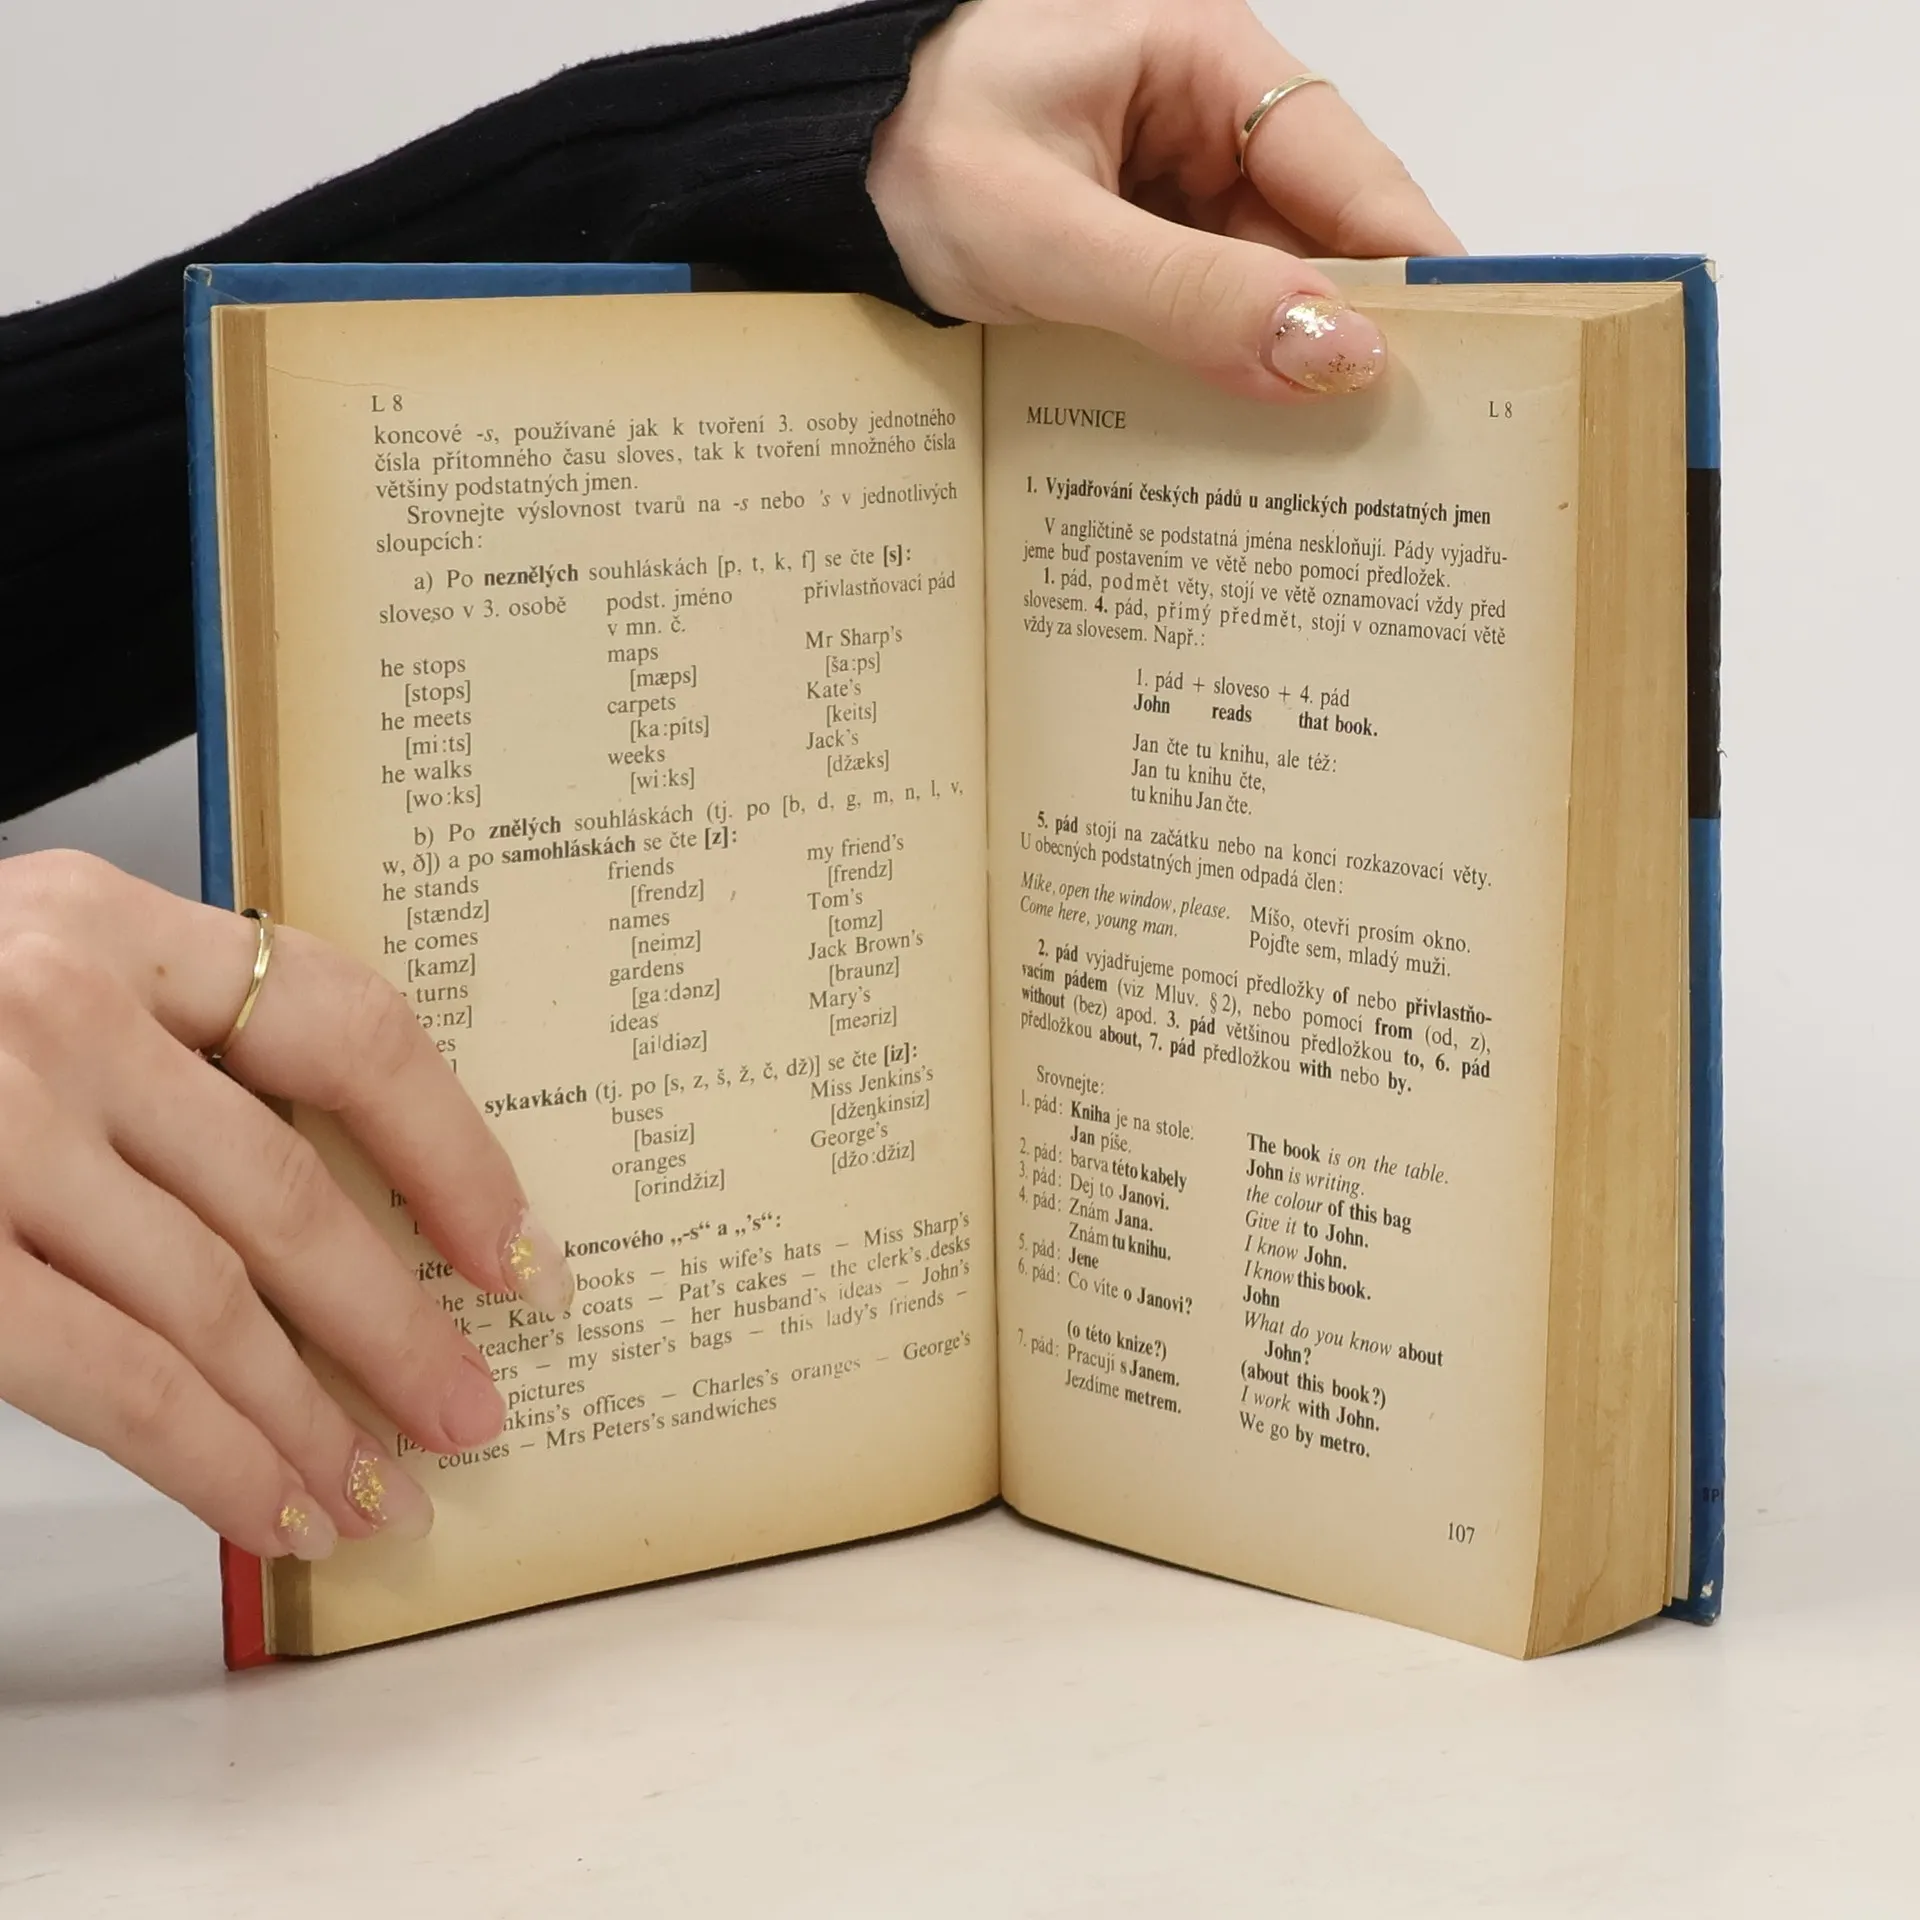 L 8
koncové -s, používané jak k tvoření 3. osoby jednotného
čísla přítomného času sloves, tak k tvoření množného čísla
většiny podstatných jmen.
Srovnejte výslovnost tvarů na -s nebo 's v jednotlivých
sloupcích:
a) Po neznělých souhláskách [p, t, k, f] se čte [s]:
sloveso v 3. osobě podst. jméno přivlastňovací pád
v mn. č.
he stops maps Mr Sharp's
[stops] [mæps] [ša:ps]
he meets carpets Kate's
[mi:ts] [ka:pits] [keits]
he walks weeks Jack's
[wo:ks] [wi:ks] [džæks]
b) Po znělých souhláskách (tj. po [b, d, g, m, n, l, v,
w, ð]) a po samohláskách se čte [z]:
he stands friends my friend's
[stændz] [frendz] [frendz]
he comes names Tom's
[kamz] [neimz] [tomz]
turns gardens Jack Brown's
[ga:dənz] [braunz]
ideas Mary's
[ai'diəz] [meəriz]
sykavkách (tj. po [s, z, š, ž, č, dž)] se čte [iz]:
buses Miss Jenkins's
[basiz] [dženkinsiz]
oranges George's
[orindžiz] [džo:džiz]
koncového „-s“ a „'s“:
books – his wife's hats – Miss Sharp's
– Kate's coats – Pat's cakes – the clerk's desks
teacher's lessons – her husband's ideas – John's
– my sister's bags – this lady's friends –
pictures
offices – Charles's oranges – George's
courses – Mrs Peters's sandwiches
MLUVNICE L 8
1. Vyjadřování českých pádů u anglických podstatných jmen
V angličtině se podstatná jména neskloňují. Pády vyjadřu-
jeme buď postavením ve větě nebo pomocí předložek.
1. pád, podmět věty, stojí ve větě oznamovací vždy před
slovesem. 4. pád, přímý předmět, stojí v oznamovací větě
vždy za slovesem. Např.:
1. pád + sloveso + 4. pád
John reads that book.
Jan čte tu knihu, ale též:
Jan tu knihu čte,
tu knihu Jan čte.
5. pád stojí na začátku nebo na konci rozkazovací věty.
U obecných podstatných jmen odpadá člen:
Mike, open the window, please. Míšo, otevři prosím okno.
Come here, young man. Pojďte sem, mladý muži.
2. pád vyjadřujeme pomocí předložky of nebo přivlastňo-
vacím pádem (viz Mluv. § 2), nebo pomocí from (od, z),
without (bez) apod. 3. pád většinou předložkou to, 6. pád
předložkou about, 7. pád předložkou with nebo by.
Srovnejte:
1. pád: Kniha je na stole. The book is on the table.
Jan píše. John is writing.
2. pád: barva této kabely the colour of this bag
3. pád: Dej to Janovi. Give it to John.
4. pád: Znám Jana. I know John.
Znám tu knihu. I know this book.
5. pád: Jene John
6. pád: Co víte o Janovi? What do you know about
John?
(o této knize?) (about this book?)
7. pád: Pracuji s Janem. I work with John.
Jezdíme metrem. We go by metro.
107